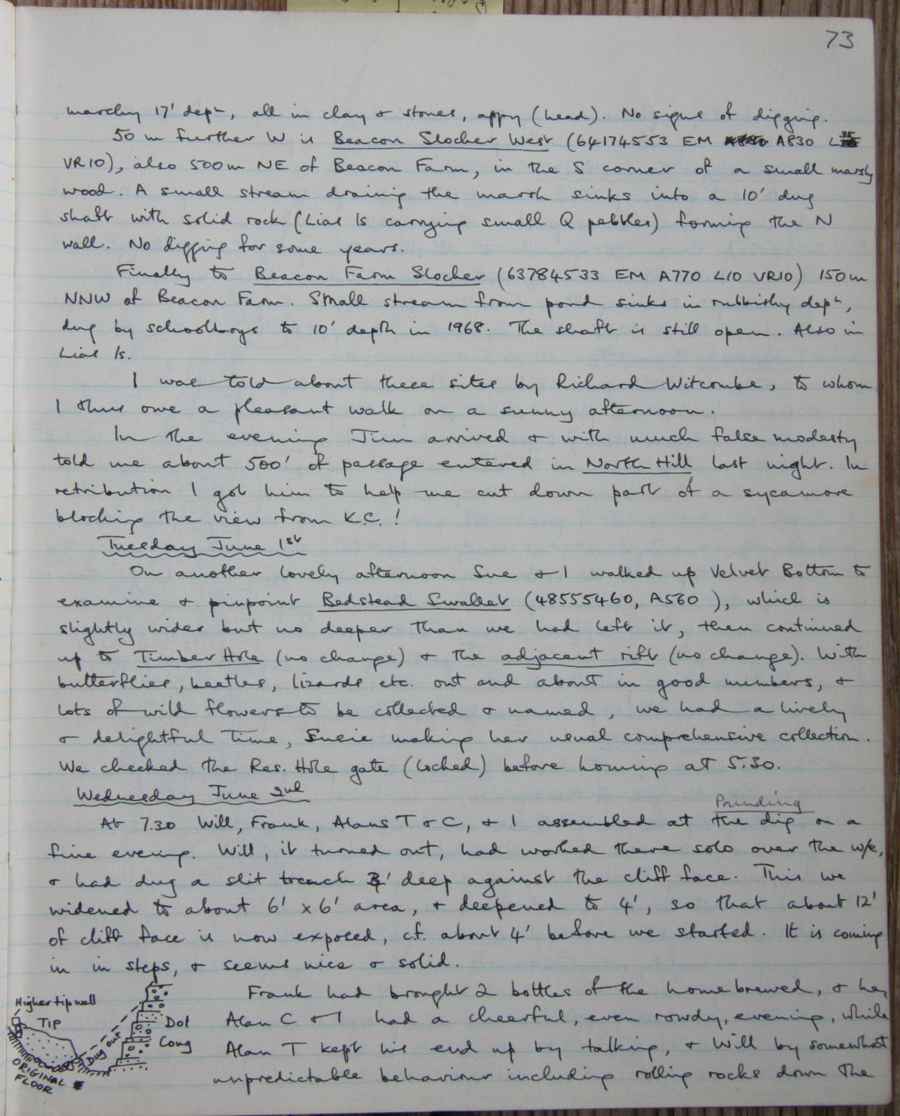 73
marshy 17' depn, all in clay & stones, appy (head). No signs of digging.
50 m further W is Beacon Slocker West (64174553 EM A830 L15
VR10), also 500m NE of Beacon Farm, in the S corner of a small marshy
wood. A small stream draining the marsh sinks into a 10' dug
shaft with solid rock (Lias ls carrying small Q pebbles) forming the N
wall. No digging for some years.
Finally to Beacon Farm Slocker (63784533 EM A770 L10 VR10) 150m
NNW of Beacon Farm. Small stream from pond sinks in rubbishy depn,
dug by schoolboys to 10' depth in 1968. The shaft is still open. Also in
Lias ls.
I was told about these sites by Richard Witcombe, to whom
I thus owe a pleasant walk on a sunny afternoon.
In the evening Jim arrived & with much false modesty
told me about 500' of passage entered in North Hill last night. In
retribution I got him to help me cut down part of a sycamore
blocking the view from K.C.!
Tuesday June 1st
On another lovely afternoon Sue & I walked up Velvet Bottom to
examine & pinpoint Bedstead Swallet (48555460, A560 ), which is
slightly wider but no deeper than we had left it, then continued
up to Timber Hole (no change) & the adjacent rift (no change). With
butterflies, beetles, lizards etc. out and about in good numbers, &
lots of wild flowers to be collected & named, we had a lively
& delightful time, Sucie making her usual comprehensive collection.
We checked the Res. Hole gate (locked) before homing at 5.30.
Wednesday June 2nd
Panding
At 7.30 Will, Frank, Alans T & C, & I assembled at the dig on a
fine evening. Will, it turned out, had worked there solo over the w/e,
& had dug a slit trench 3' deep against the cliff face. This we
widened to about 6' x 6' area, & deepened to 4', so that about 12'
of cliff face is now exposed, cf. about 4' before we started. It is coming
in in steps, & seems nice & solid.
Frank had brought 2 bottles of the home brewed, & he,
Alan C & I had a cheerful, even rowdy, evening, while
Alan T kept his end up by talking, & Will by somewhat
unpredictable behaviour including rolling rocks down the
Higher tip wall
Tip
Dug out
Dol
Cong
ORIGINAL
FLOOR